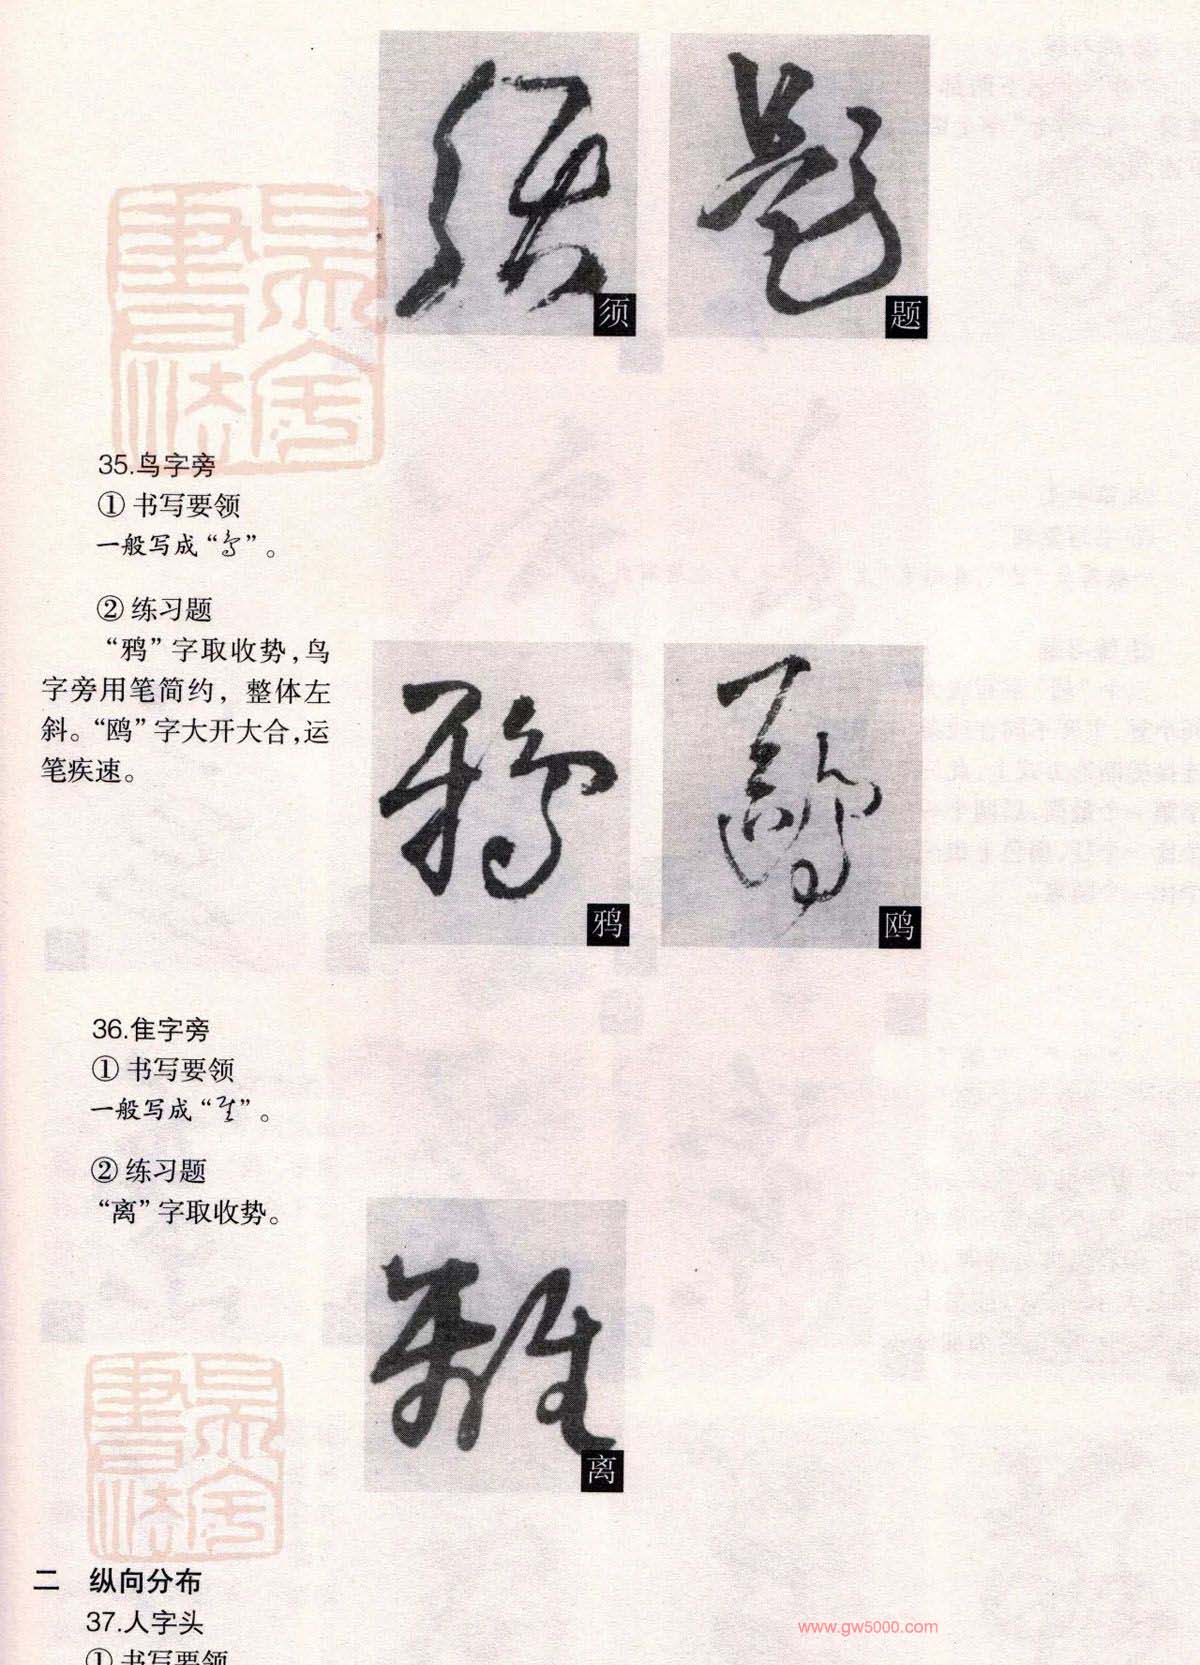 须
题
35.鸟字旁
① 书写要领
一般写成“”。
② 练习题
“鸦”字取收势，鸟
字旁用笔简约，整体左
斜。“鸥”字大开大合，运
笔疾速。
鸦
鸥
36.隹字旁
① 书写要领
一般写成“”。
② 练习题
“离”字取收势。
离
二 纵向分布
37.人字头
① 书写要领
www.gw5000.com